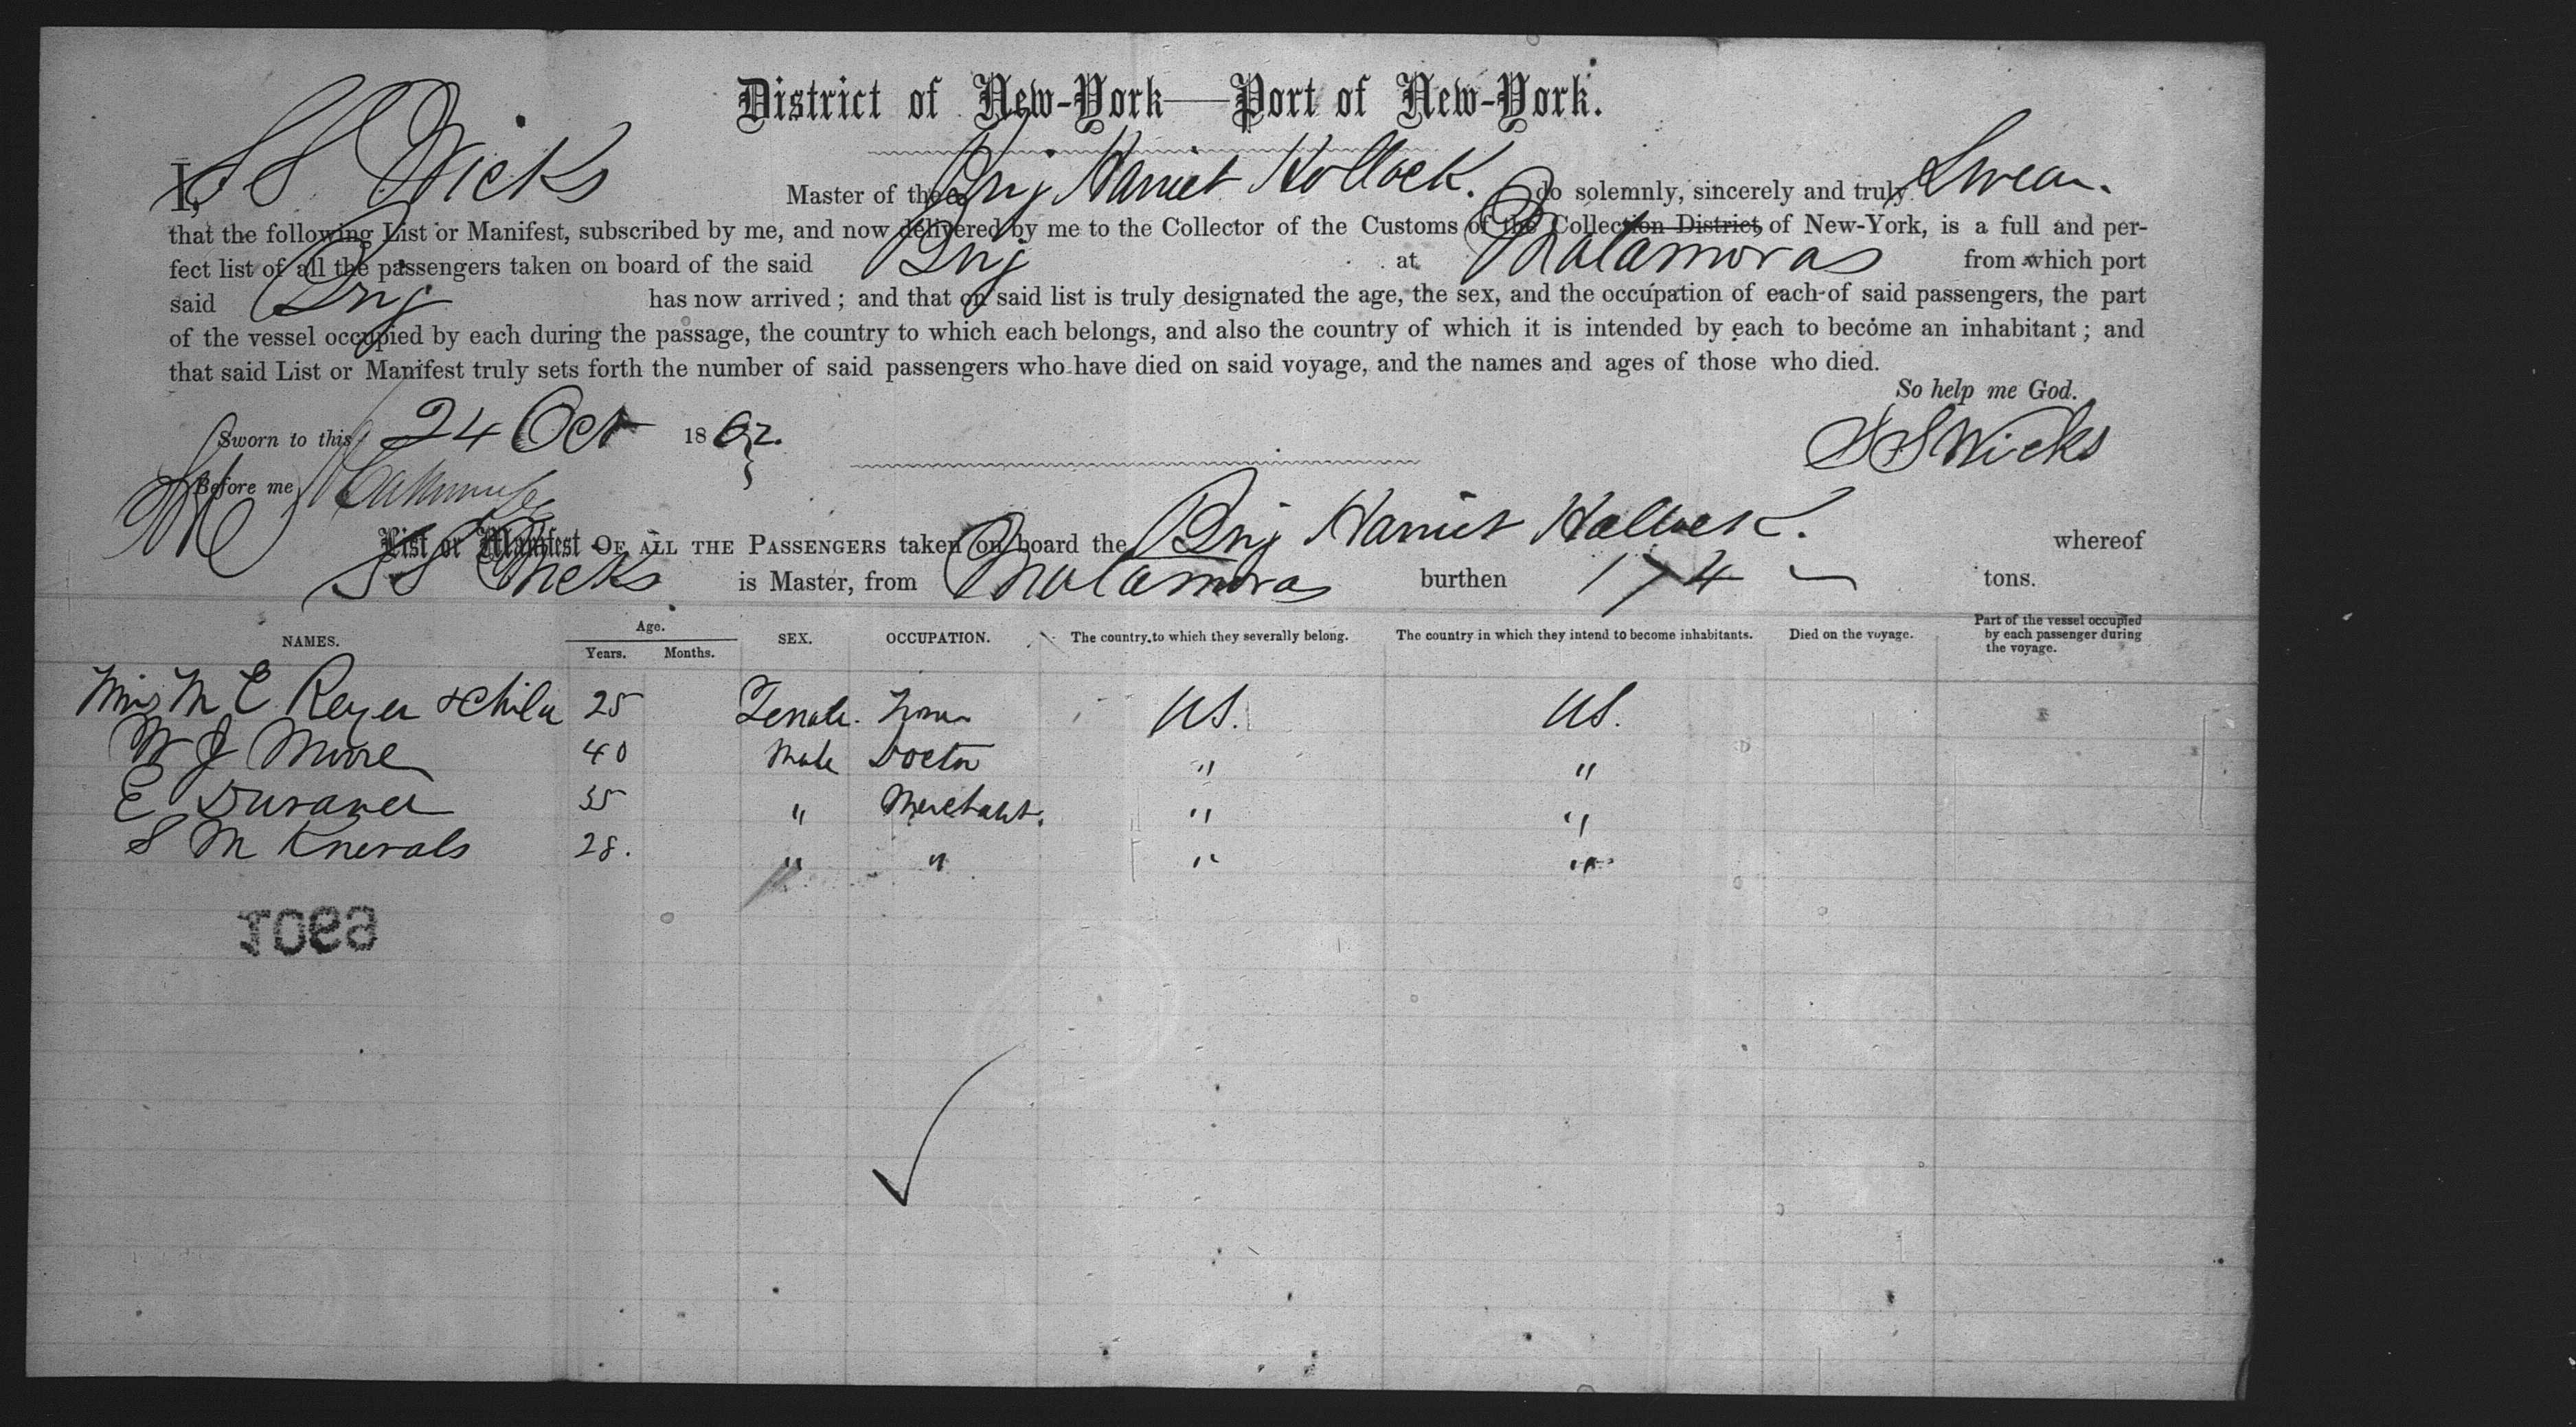 District of New-York—Port of New-York.
I, S S Wicks Master of the Brig Harriet Hallock. do solemnly, sincerely and truly Swear.
that the following List or Manifest, subscribed by me, and now delivered by me to the Collector of the Customs of the Collection District of New-York, is a full and per-
fect list of all the passengers taken on board of the said Brig at Matamoras from which port
said Brig has now arrived; and that on said list is truly designated the age, the sex, and the occupation of each of said passengers, the part
of the vessel occupied by each during the passage, the country to which each belongs, and also the country of which it is intended by each to become an inhabitant; and
that said List or Manifest truly sets forth the number of said passengers who have died on said voyage, and the names and ages of those who died.
So help me God.
Sworn to this 24 Oct 1862. S S Wicks
Before me
List or Manifest OF ALL THE PASSENGERS taken on board the Brig Harriet Hallock. whereof
S S Wicks is Master, from Matamoras burthen 174 tons.
NAMES. Age. Years. Months. SEX. OCCUPATION. The country to which they severally belong. The country in which they intend to become inhabitants. Died on the voyage. Part of the vessel occupied by each passenger during the voyage.
Mrs M E Reyer & child 25 Female. US. US.
W J Moore 40 Male Doctor " "
E 35 " Merchant. " "
S M Knevals 28. " " " "